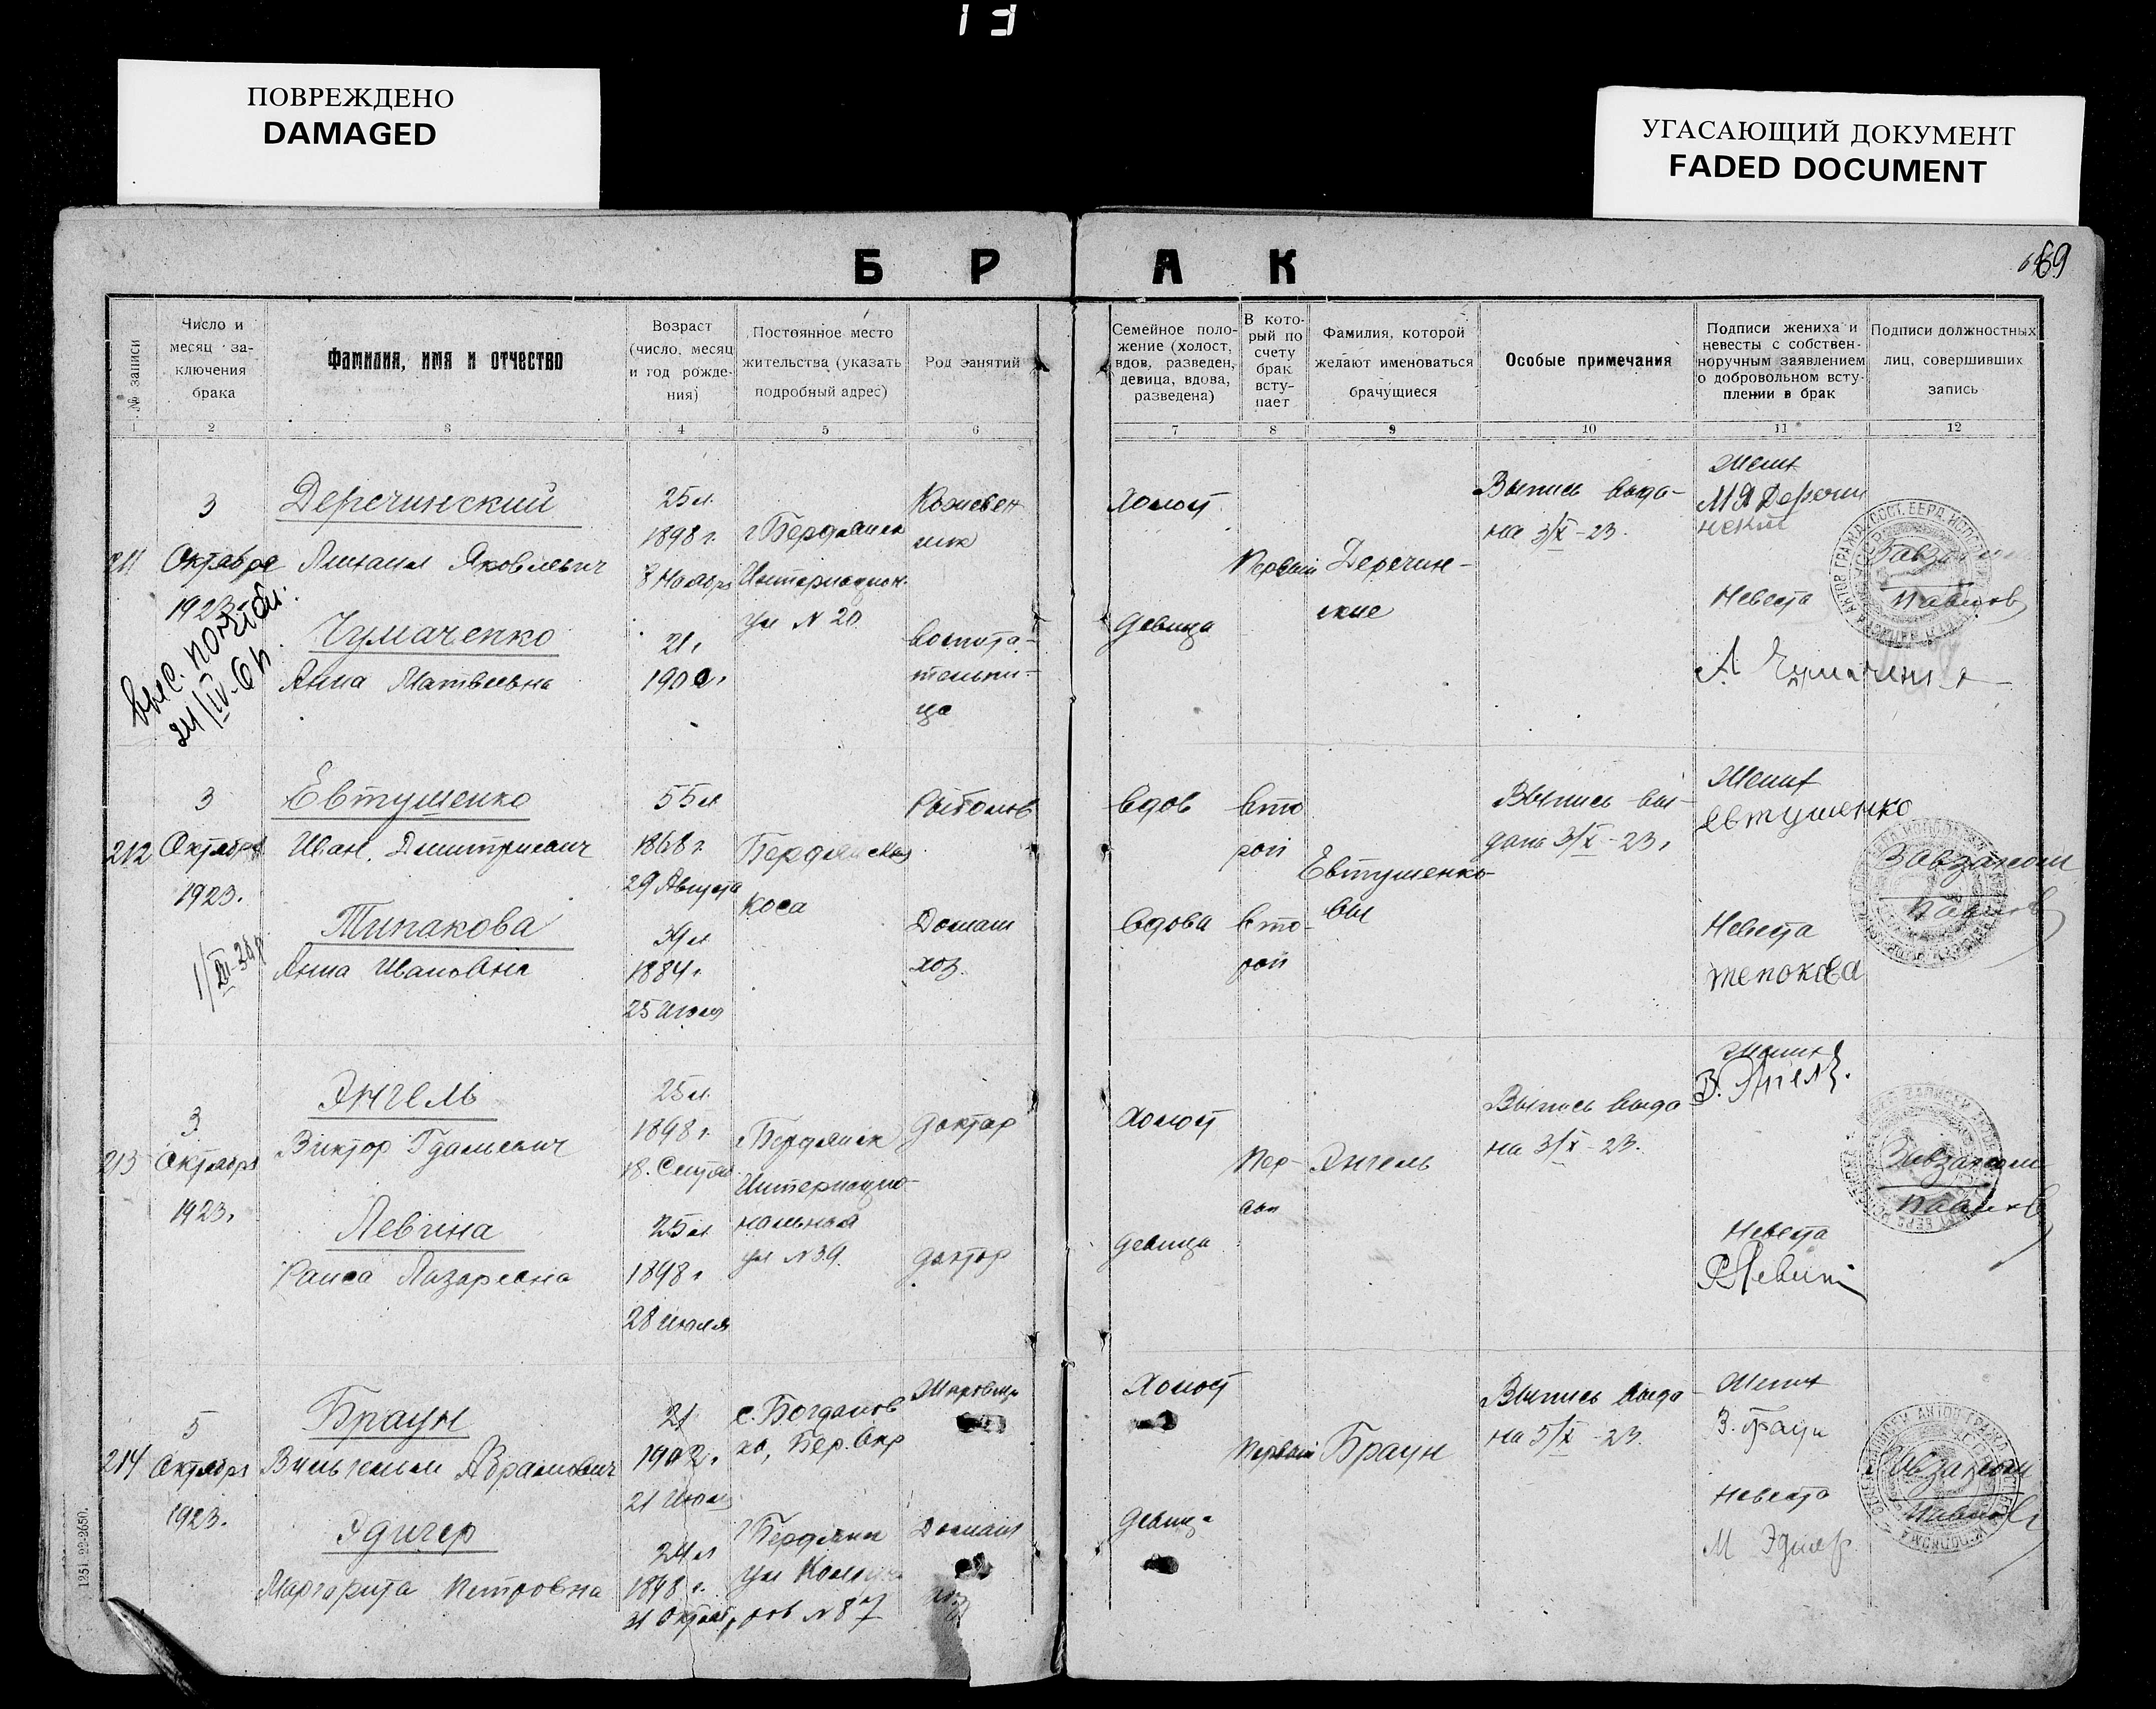 13
ПОВРЕЖДЕНО
DAMAGED
УГАСАЮЩИЙ ДОКУМЕНТ
FADED DOCUMENT
БРАК
69
№ записи
Число и
месяц за-
ключения
брака
Фамилия, имя и отчество
Возраст
(число, месяц
и год рожде-
ния)
Постоянное место
жительства (указать
подробный адрес)
Род занятий
Семейное поло-
жение (холост,
вдов, разведен,
девица, вдова,
разведена)
В кото-
рый по
счету
брак
всту-
пает
Фамилия, которой
желают именоваться
брачущиеся
Особые примечания
Подписи жениха и
невесты с собствен-
норучным заявлением
о добровольном всту-
плении в брак
Подписи должностных
лиц, совершивших
запись
1 2 3 4 5 6 7 8 9 10 11 12
211
3
Октября
1923
21/IV-61г.
Деречинский
Михаил Яковлевич
Чумаченко
Анна Матвеевна
25 л.
1898 г.
8 Ноября
21 г.
г Бердянск
Интернацион.
ул N 20
Кожевен
ник
воспита-
тельни-
ца
Холост
девица
Первый
Деречин-
ские
Выпись выда-
на 3/X-23.
Жених
МЯ Деречин
ский
Невеста
А Чумаченко
Завзагсом
Павлов
212
3
Октября
1923.
Евтушенко
Иван Дмитриевич
Типакова
Анна Ивановна
55 л
1868 г.
29 Августа
39 л
1884 г.
25 Июля
Бердянская
коса
Рыболов
Домаш
хоз.
вдов
вдова
вто
рой
вто-
рой
Евтушенко-
вы
Выпись вы-
дана 3/X-23 г.
Жених
Евтушенко
Невеста
Тепокова
Завзагсом
Павлов
213
3
Октября
1923.
Ангель
Виктор Гдалиевич
Левина
Раиса Лазаревна
25 л.
1898 г.
18. Сентяб
25 л
1898 г
28 Июля
г Бердянск
Интернацио-
нальная
ул N 39.
доктор
доктор
Холост
девица
Пер-
вый
Ангель
Выпись выда
на 3/X-23.
Жених
Невеста
Завзагсом
Павлов
214
5
Октября
1923.
Браун
Вильгельм Абрамович
Эдигер
Маргарита Петровна
21
1902 г.
21 Июля
24 л
1898 г.
21 Октяб
с. Богданов
ка, Бер. Окр
г Бердянск
N 87
Домаш
хоз
Холост
девица
Первый
Браун
Выпись выда
на 5/X-23.
Жених
В. Браун
Невеста
М Эдигер
Завзагсом
Павлов
1251. 22-2650.